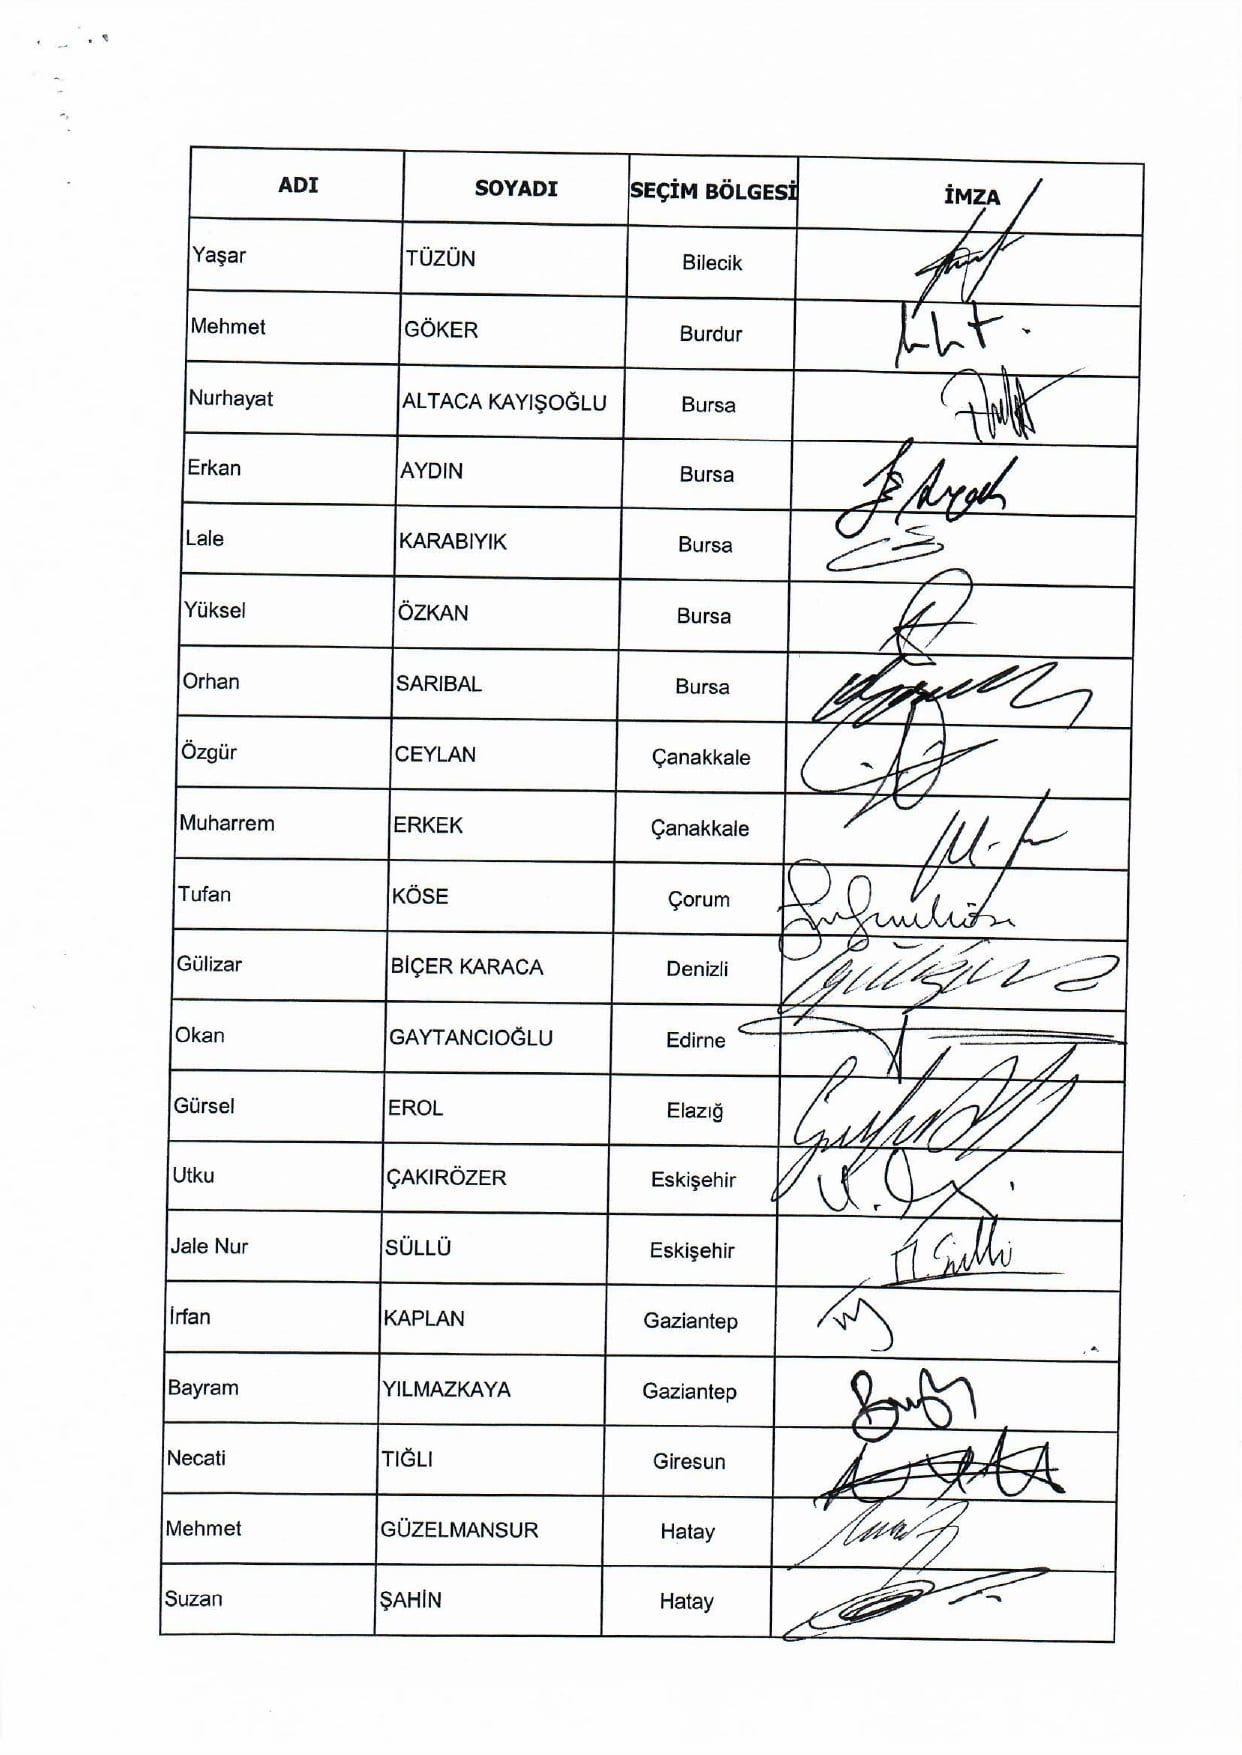 ADI SOYADI SEÇİM BÖLGESİ İMZA
Yaşar TÜZÜN Bilecik
Mehmet GÖKER Burdur
Nurhayat ALTACA KAYIŞOĞLU Bursa
Erkan AYDIN Bursa
Lale KARABIYIK Bursa
Yüksel ÖZKAN Bursa
Orhan SARIBAL Bursa
Özgür CEYLAN Çanakkale
Muharrem ERKEK Çanakkale
Tufan KÖSE Çorum
Gülizar BİÇER KARACA Denizli
Okan GAYTANCIOĞLU Edirne
Gürsel EROL Elazığ
Utku ÇAKIRÖZER Eskişehir
Jale Nur SÜLLÜ Eskişehir
İrfan KAPLAN Gaziantep
Bayram YILMAZKAYA Gaziantep
Necati TIĞLI Giresun
Mehmet GÜZELMANSUR Hatay
Suzan ŞAHİN Hatay